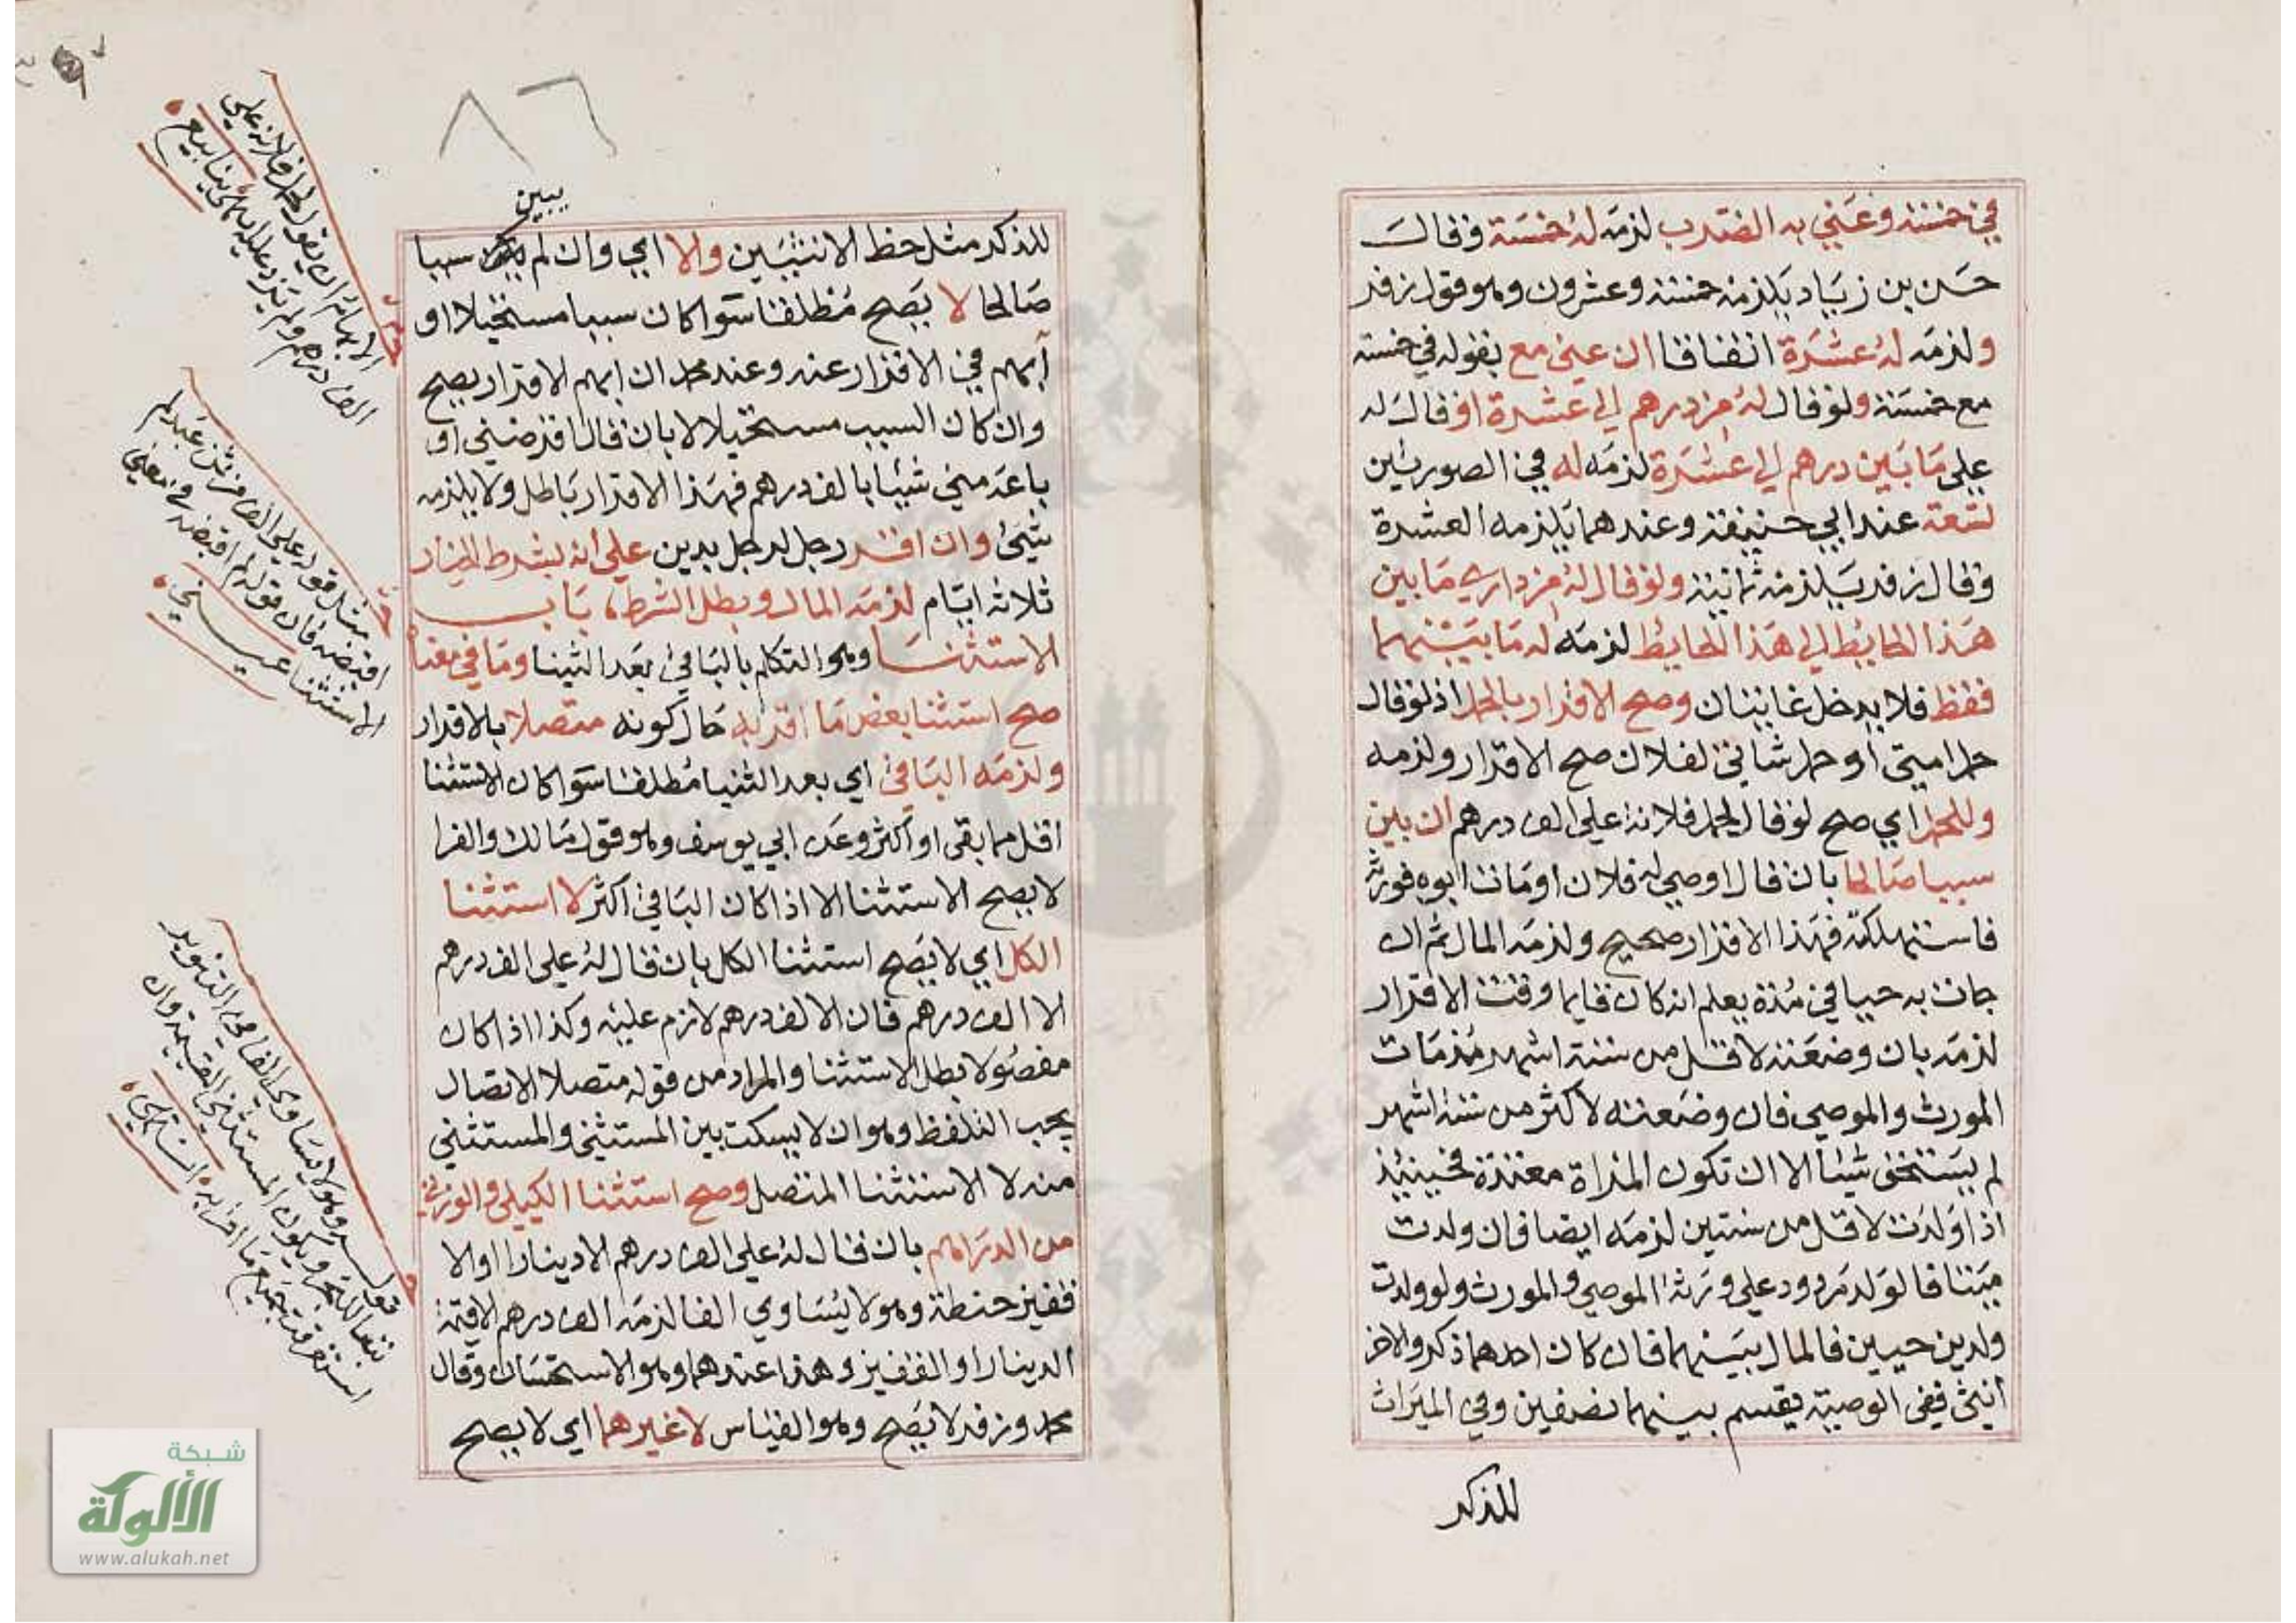 في خمسة وعني به الضرب لزمه له خمسة وقال
حسن بن زياد يلزمه خمسة وعشرون وهو قول زفر
ولزمه له عشرة اتفاقا ان عني مع بقوله في خمسة
مع خمسة ولو قال له من درهم الي عشرة او قال له
علي ما بين درهم الي عشرة لزمه له في الصورتين
تسعة عند ابي حنيفة وعندهما يلزمه العشرة
وقال زفر يلزمه ثمانية ولو قال له من داري ما بين
هذا الحايط الي هذا الحايط لزمه له ما بينهما
فقط فلا يدخل غايتان وصح الاقرار بالحمل اذ لو قال
حمل امتي او حمل شاتي لفلان صح الاقرار ولزمه
وللحمل اي صح لو قال لحمل فلانة علي الف درهم ان بين
سببا صالحا بان قال اوصي له فلان او مات ابوه فورثه
فاستهلكته فهذا الاقرار صحيح ولزمه المال ثم ان
جات به حيا في مدة يعلم انه كان قايما وقت الاقرار
لزمه بان وضعته لاقل من ستة اشهر مذ مات
المورث والموصي فان وضعته لاكثر من ستة اشهر
لم يستحق شيئا الا ان تكون المراة معتدة فحينيذ
اذا ولدت لاقل من سنتين لزمه ايضا فان ولدت
ميتا فالولد مردود علي ورثة الموصي والمورث ولو ولدت
ولدين حيين فالمال بينهما فان كان احدهما ذكر والاخر
انثي ففي الوصية يقسم بينهما نصفين وفي الميراث
للذكر
٨٦
يبين
للذكر مثل حظ الانثيين والا اي وان لم سببا
صالحا لا يصح مطلقا سوا كان سببا مستحيلا او
ابهم في الاقرار عنه وعند محمد ان ابهم الاقرار يصح
وان كان السبب مستحيلا لا بان قال اقرضني او
باعه مني شيئا بالف درهم فهذا الاقرار باطل ولا يلزمه
شيئ وان اقر رجل لرجل بدين علي انه بشرط الخيار
ثلاثة ايام لزمه المال وبطل الشرط، باب
الاستثنا وهو التكلم بالباقي بعد الثنيا وما في معناه
صح استثنا بعض ما اقر به حال كونه متصلا بالاقرار
ولزمه الباقي اي بعد الثنيا مطلقا سوا كان الاستثنا
اقل مما بقي او اكثر وعن ابي يوسف وهو قول مالك والفرا
لا يصح الاستثنا الا اذا كان الباقي اكثر لا استثنا
الكل اي لا يصح استثنا الكل بان قال له علي الف درهم
الا الف درهم فان الالف درهم لازم عليه وكذا اذا كان
مفصولا بطل الاستثنا والمراد من قوله متصلا الاتصال
بحب التلفظ وهو ان لا يسكت بين المستثني والمستثني
منه لا الاستثنا المتصل وصح استثنا الكيلي والوزني
من الدراهم بان قال له علي الف درهم الا دينارا او الا
قفيز حنطة وهو لا يساوي الفا لزمه الف درهم الا قيمة
الدينار او القفيز وهذا عندهما وهو الاستحسان وقال
محمد وزفر لا يصح وهو القياس لا غيرهما اي لا يصح
الابهام ان يقول لحمل فلانة علي
الف درهم ولم يزد عليه ينابيع
مثل قوله علي الف من ثمن عبد لم
اقبضه فان قوله لم اقبضه في معني
الاستثنا عيني
قوله وهو لا يساوي الفا في التنوير
تبعا للبحر ويكون المستثني القيمة وان
استغرقت جميع ما اقر به
شبكة
الألوكة
www.alukah.net